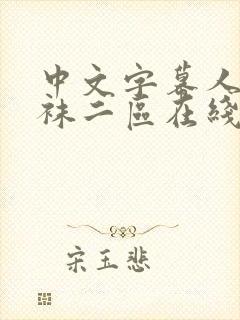 中文字幕人
袜二區在綫
宋玉悲